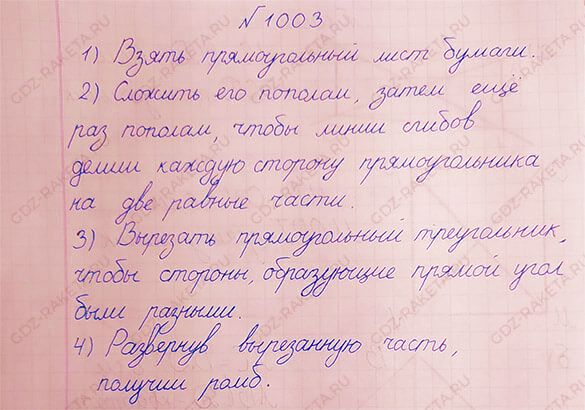 №1003
1) Взять прямоугольный лист бумаги.
2) Сложить его пополам, затем ещё
раз пополам, чтобы линии сгибов
делили каждую сторону прямоугольника
на две равные части.
3) Вырезать прямоугольный треугольник,
чтобы стороны, образующие прямой угол
были разными.
4) Развернув вырезанную часть,
получим ромб.
GDZ-RAKETA.RU